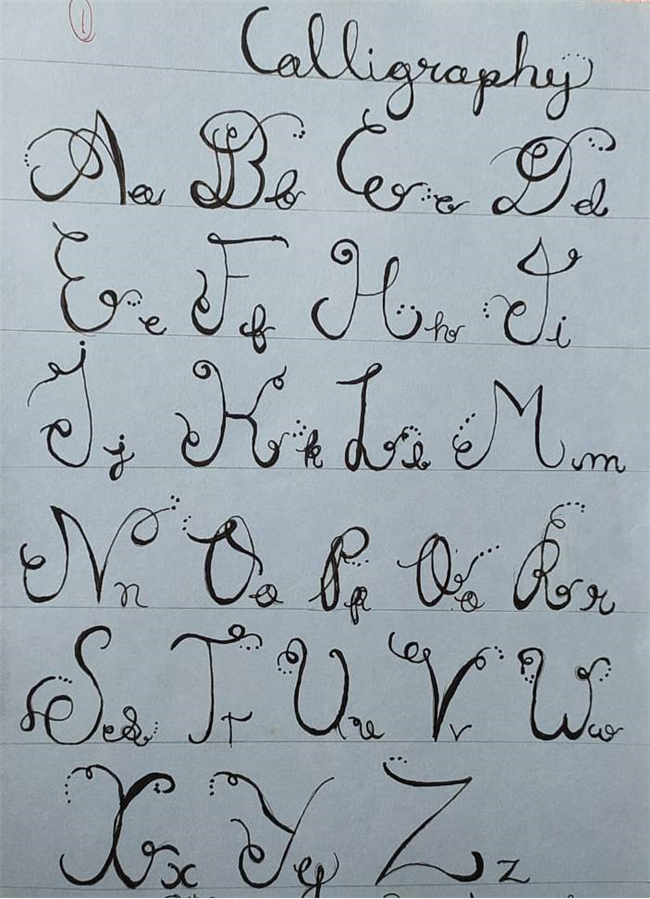 1
Calligraphy
Aa Bb Cc Dd
Ee Ff Hh Ii
Jj Kk Ll Mm
Nn Oo Pp Qq Rr
Ss Tt Uu Vv Ww
Xx Yy Zz